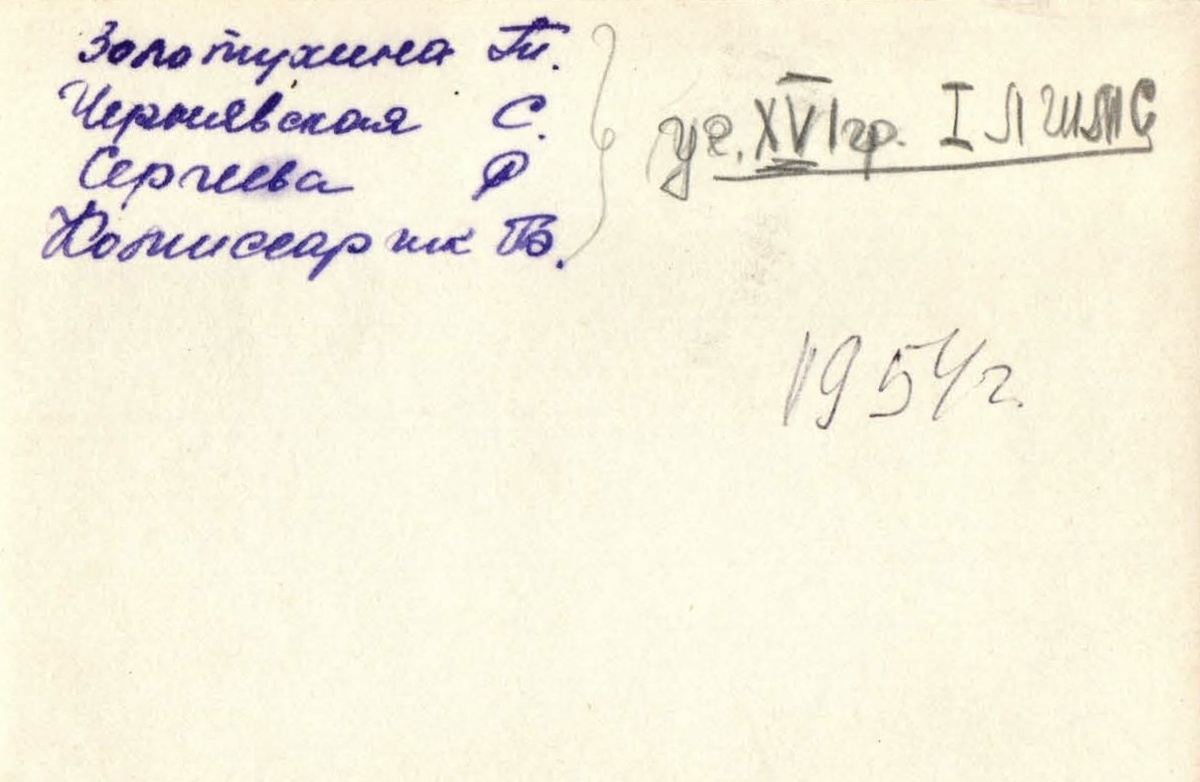 Золотухина Т.
Чернявская С.
Сергеева Р
Комиссарчик В.
уч. XVI гр. I ЛШМС
1954 г.